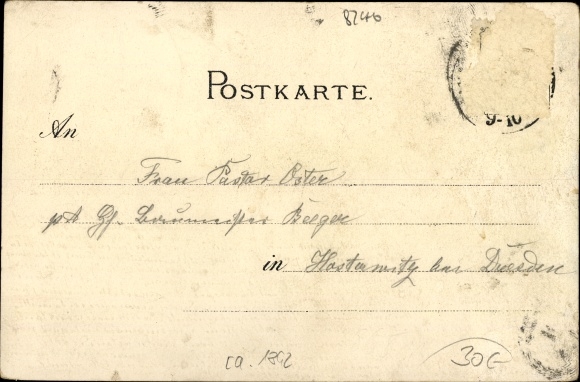 8246
POSTKARTE.
9-10
An
Frau Pastor Oster
Baumeister Berger
in Hosterwitz bei Dresden
ca. 1892
30€